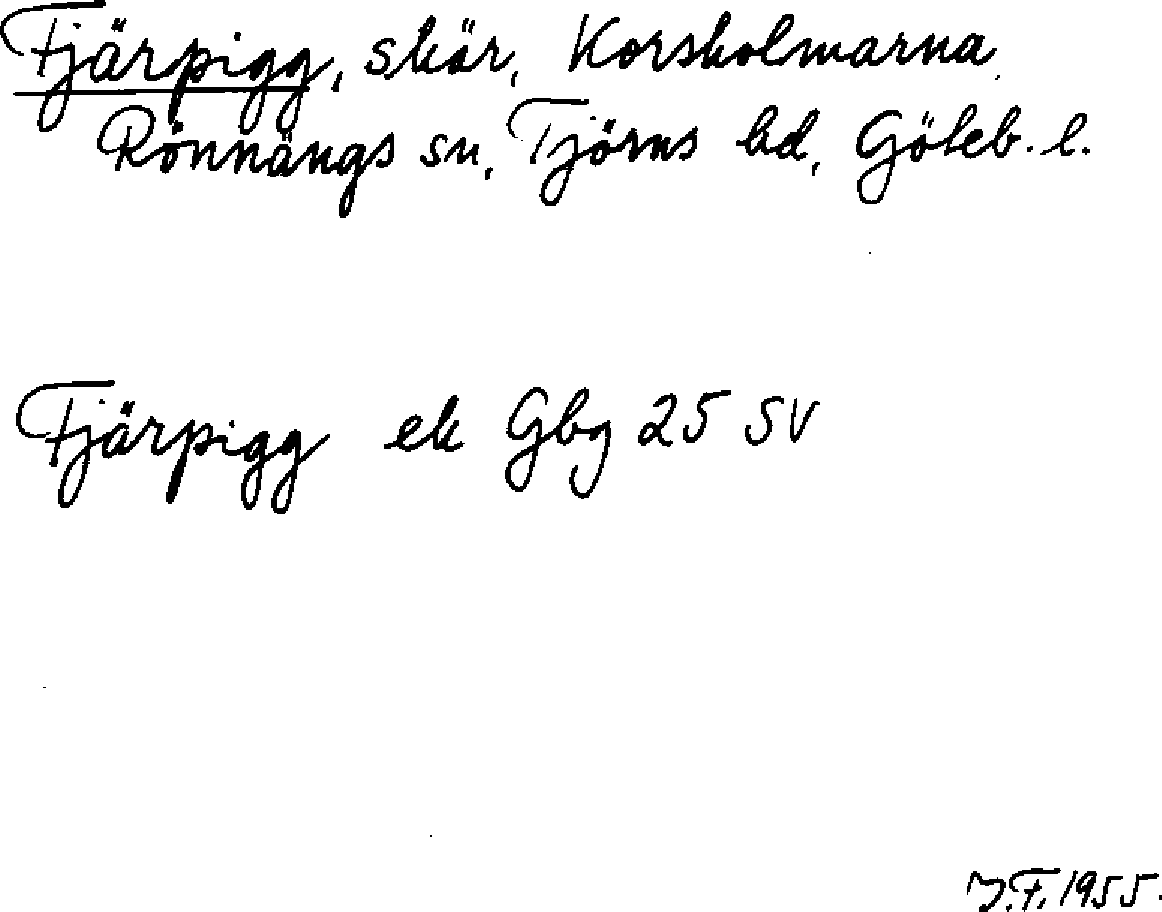 Fjärpigg, skär, Korsholmarna,
Rönnängs sn, Tjörns hd, Göteb. l.
Fjärpigg ek Gbg 25 SV
J.F. 1955.